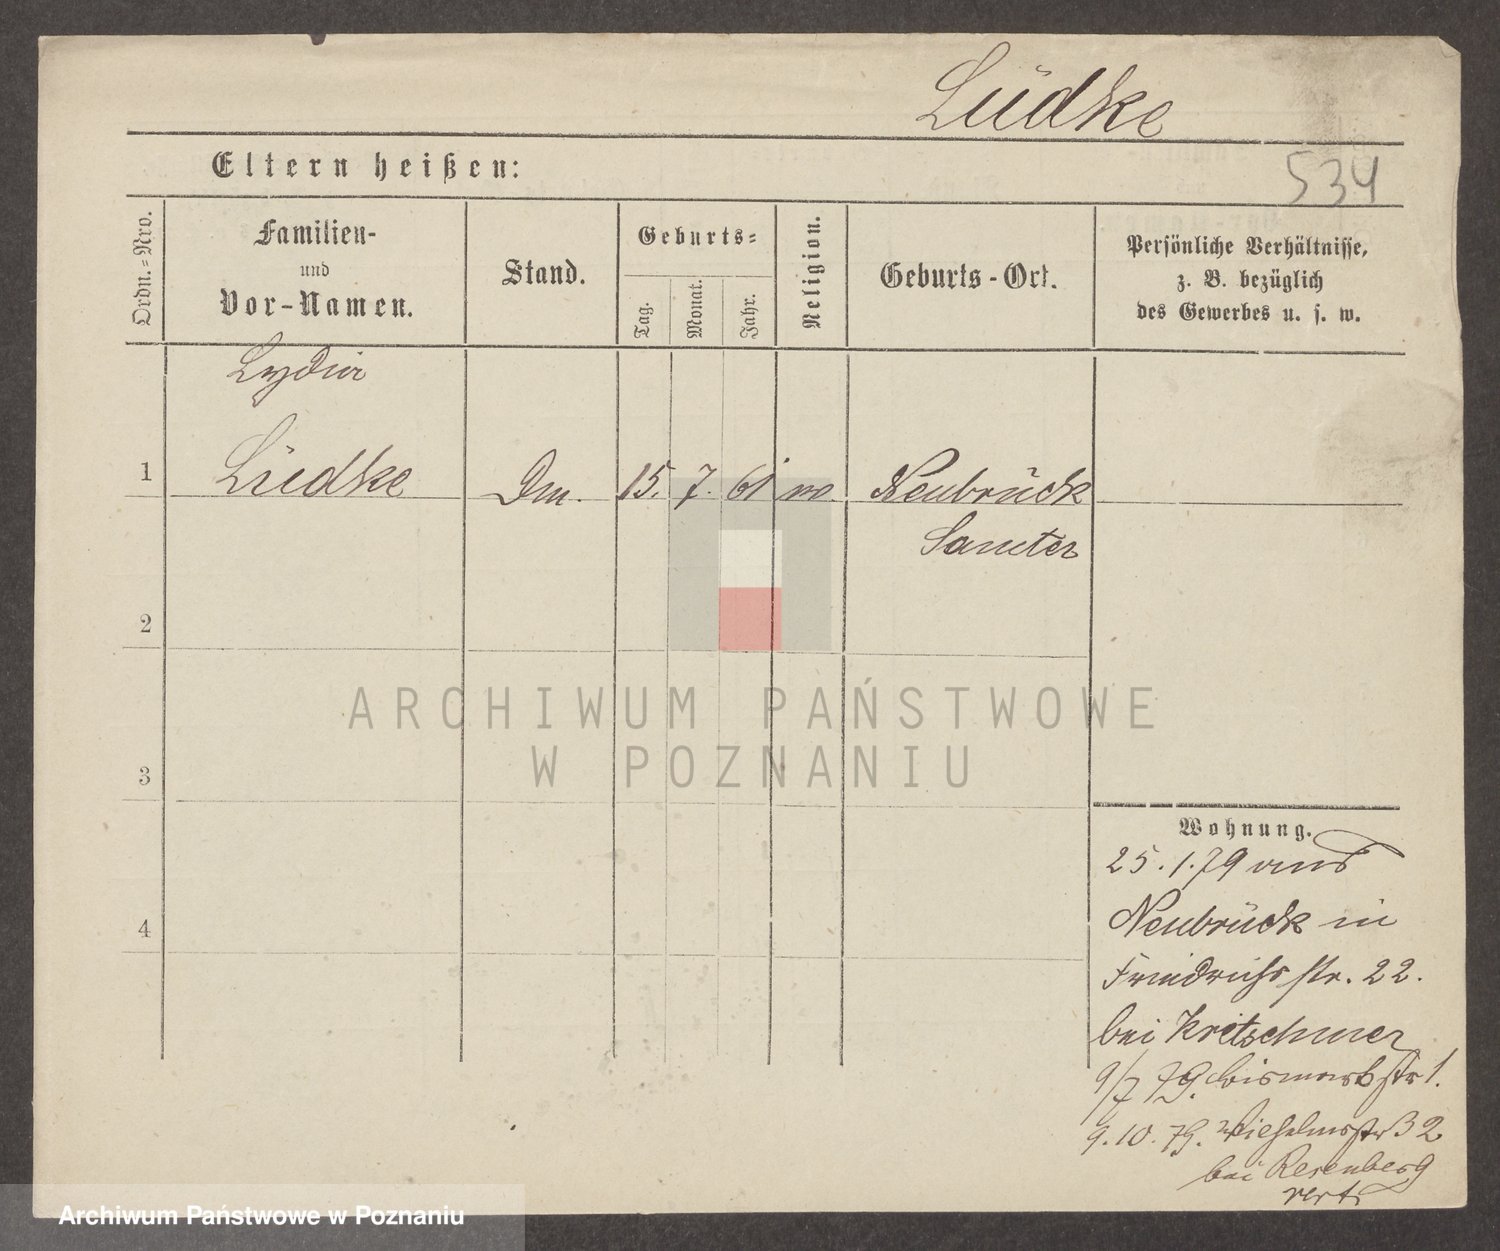 Lüdke
Eltern heißen:
534
Ordn.-Nro.
Familien-
und
Vor-Namen.
Stand.
Geburts-
Tag.
Monat.
Jahr.
Religion.
Geburts-Ort.
Persönliche Verhältnisse,
z. B. bezüglich
des Gewerbes u. s. w.
Lydia
1 Lüdke Dm. 15. 7. 61 Neubrück
Samter
2
3
4
Wohnung.
25.1.79 aus
Neubrück in
Friedrichsstr. 22.
bei Kretschmer
9/7 79. Bismarkstr 1.
9.10.79. Wilhelmsstr 32
bei Rosenberg
ARCHIWUM PAŃSTWOWE
W POZNANIU
Archiwum Państwowe w Poznaniu